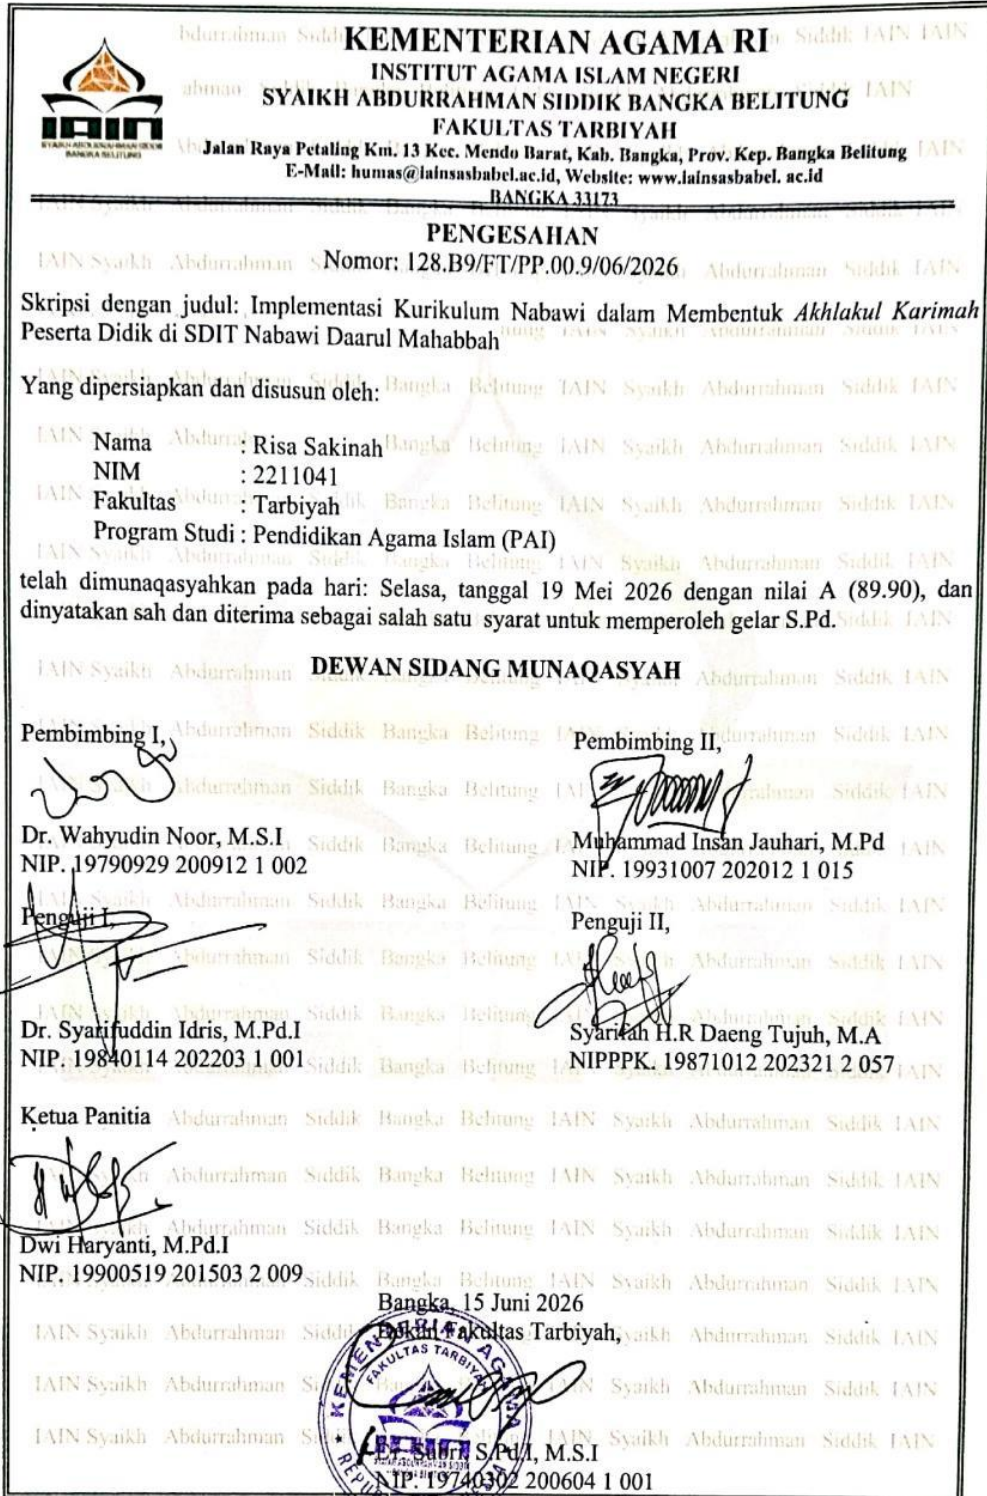 KEMENTERIAN AGAMA RI
INSTITUT AGAMA ISLAM NEGERI
SYAIKH ABDURRAHMAN SIDDIK BANGKA BELITUNG
FAKULTAS TARBIYAH
Jalan Raya Petaling Km. 13 Kec. Mendo Barat, Kab. Bangka, Prov. Kep. Bangka Belitung
E-Mail: humas@iainsasbabel.ac.id, Website: www.iainsasbabel. ac.id
BANGKA 33173
IAIN
SYAIKH ABDURRAHMAN SIDDIK
BANGKA BELITUNG
PENGESAHAN
Nomor: 128.B9/FT/PP.00.9/06/2026
Skripsi dengan judul: Implementasi Kurikulum Nabawi dalam Membentuk Akhlakul Karimah
Peserta Didik di SDIT Nabawi Daarul Mahabbah
Yang dipersiapkan dan disusun oleh:
Nama : Risa Sakinah
NIM : 2211041
Fakultas : Tarbiyah
Program Studi : Pendidikan Agama Islam (PAI)
telah dimunaqasyahkan pada hari: Selasa, tanggal 19 Mei 2026 dengan nilai A (89.90), dan
dinyatakan sah dan diterima sebagai salah satu syarat untuk memperoleh gelar S.Pd.
DEWAN SIDANG MUNAQASYAH
Pembimbing I,
Dr. Wahyudin Noor, M.S.I
NIP. 19790929 200912 1 002
Pembimbing II,
Muhammad Insan Jauhari, M.Pd
NIP. 19931007 202012 1 015
Penguji I,
Dr. Syarifuddin Idris, M.Pd.I
NIP. 19840114 202203 1 001
Penguji II,
Syarifah H.R Daeng Tujuh, M.A
NIPPPK. 19871012 202321 2 057
Ketua Panitia
Dwi Haryanti, M.Pd.I
NIP. 19900519 201503 2 009
Bangka, 15 Juni 2026
Dekan Fakultas Tarbiyah,
KEMENTERIAN AGAMA
FAKULTAS TARBIYAH
IAIN
Dr. Subri, S.Pd.I, M.S.I
NIP. 19740302 200604 1 001